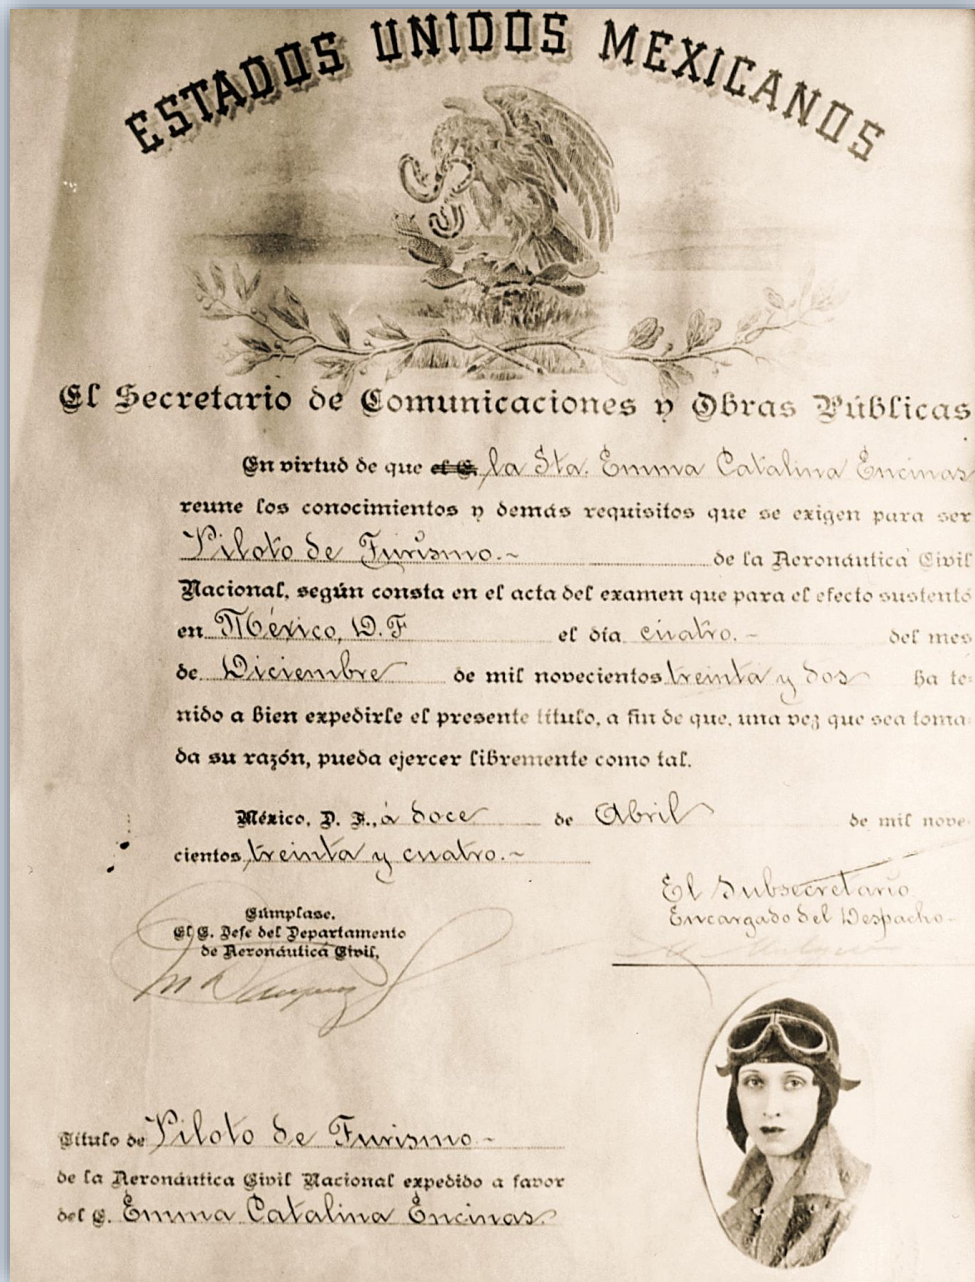 ESTADOS UNIDOS MEXICANOS
El Secretario de Comunicaciones y Obras Públicas
En virtud de que el C. la Sta. Emma Catalina Encinas
reune los conocimientos y demás requisitos que se exigen para ser
Piloto de Turismo.- de la Aeronáutica Civil
Nacional, según consta en el acta del examen que para el efecto sustentó
en México, D.F el día cuatro.- del mes
de Diciembre de mil novecientos treinta y dos ha te-
nido a bien expedirle el presente título, a fin de que, una vez que sea toma-
da su razón, pueda ejercer libremente como tal.
México, D. F., á doce de Abril de mil nove-
cientos treinta y cuatro.-
El Subsecretario
Encargado del Despacho-
Cúmplase.
El C. Jefe del Departamento
de Aeronáutica Civil,
Título de Piloto de Turismo-
de la Aeronáutica Civil Nacional expedido a favor
del C. Emma Catalina Encinas.